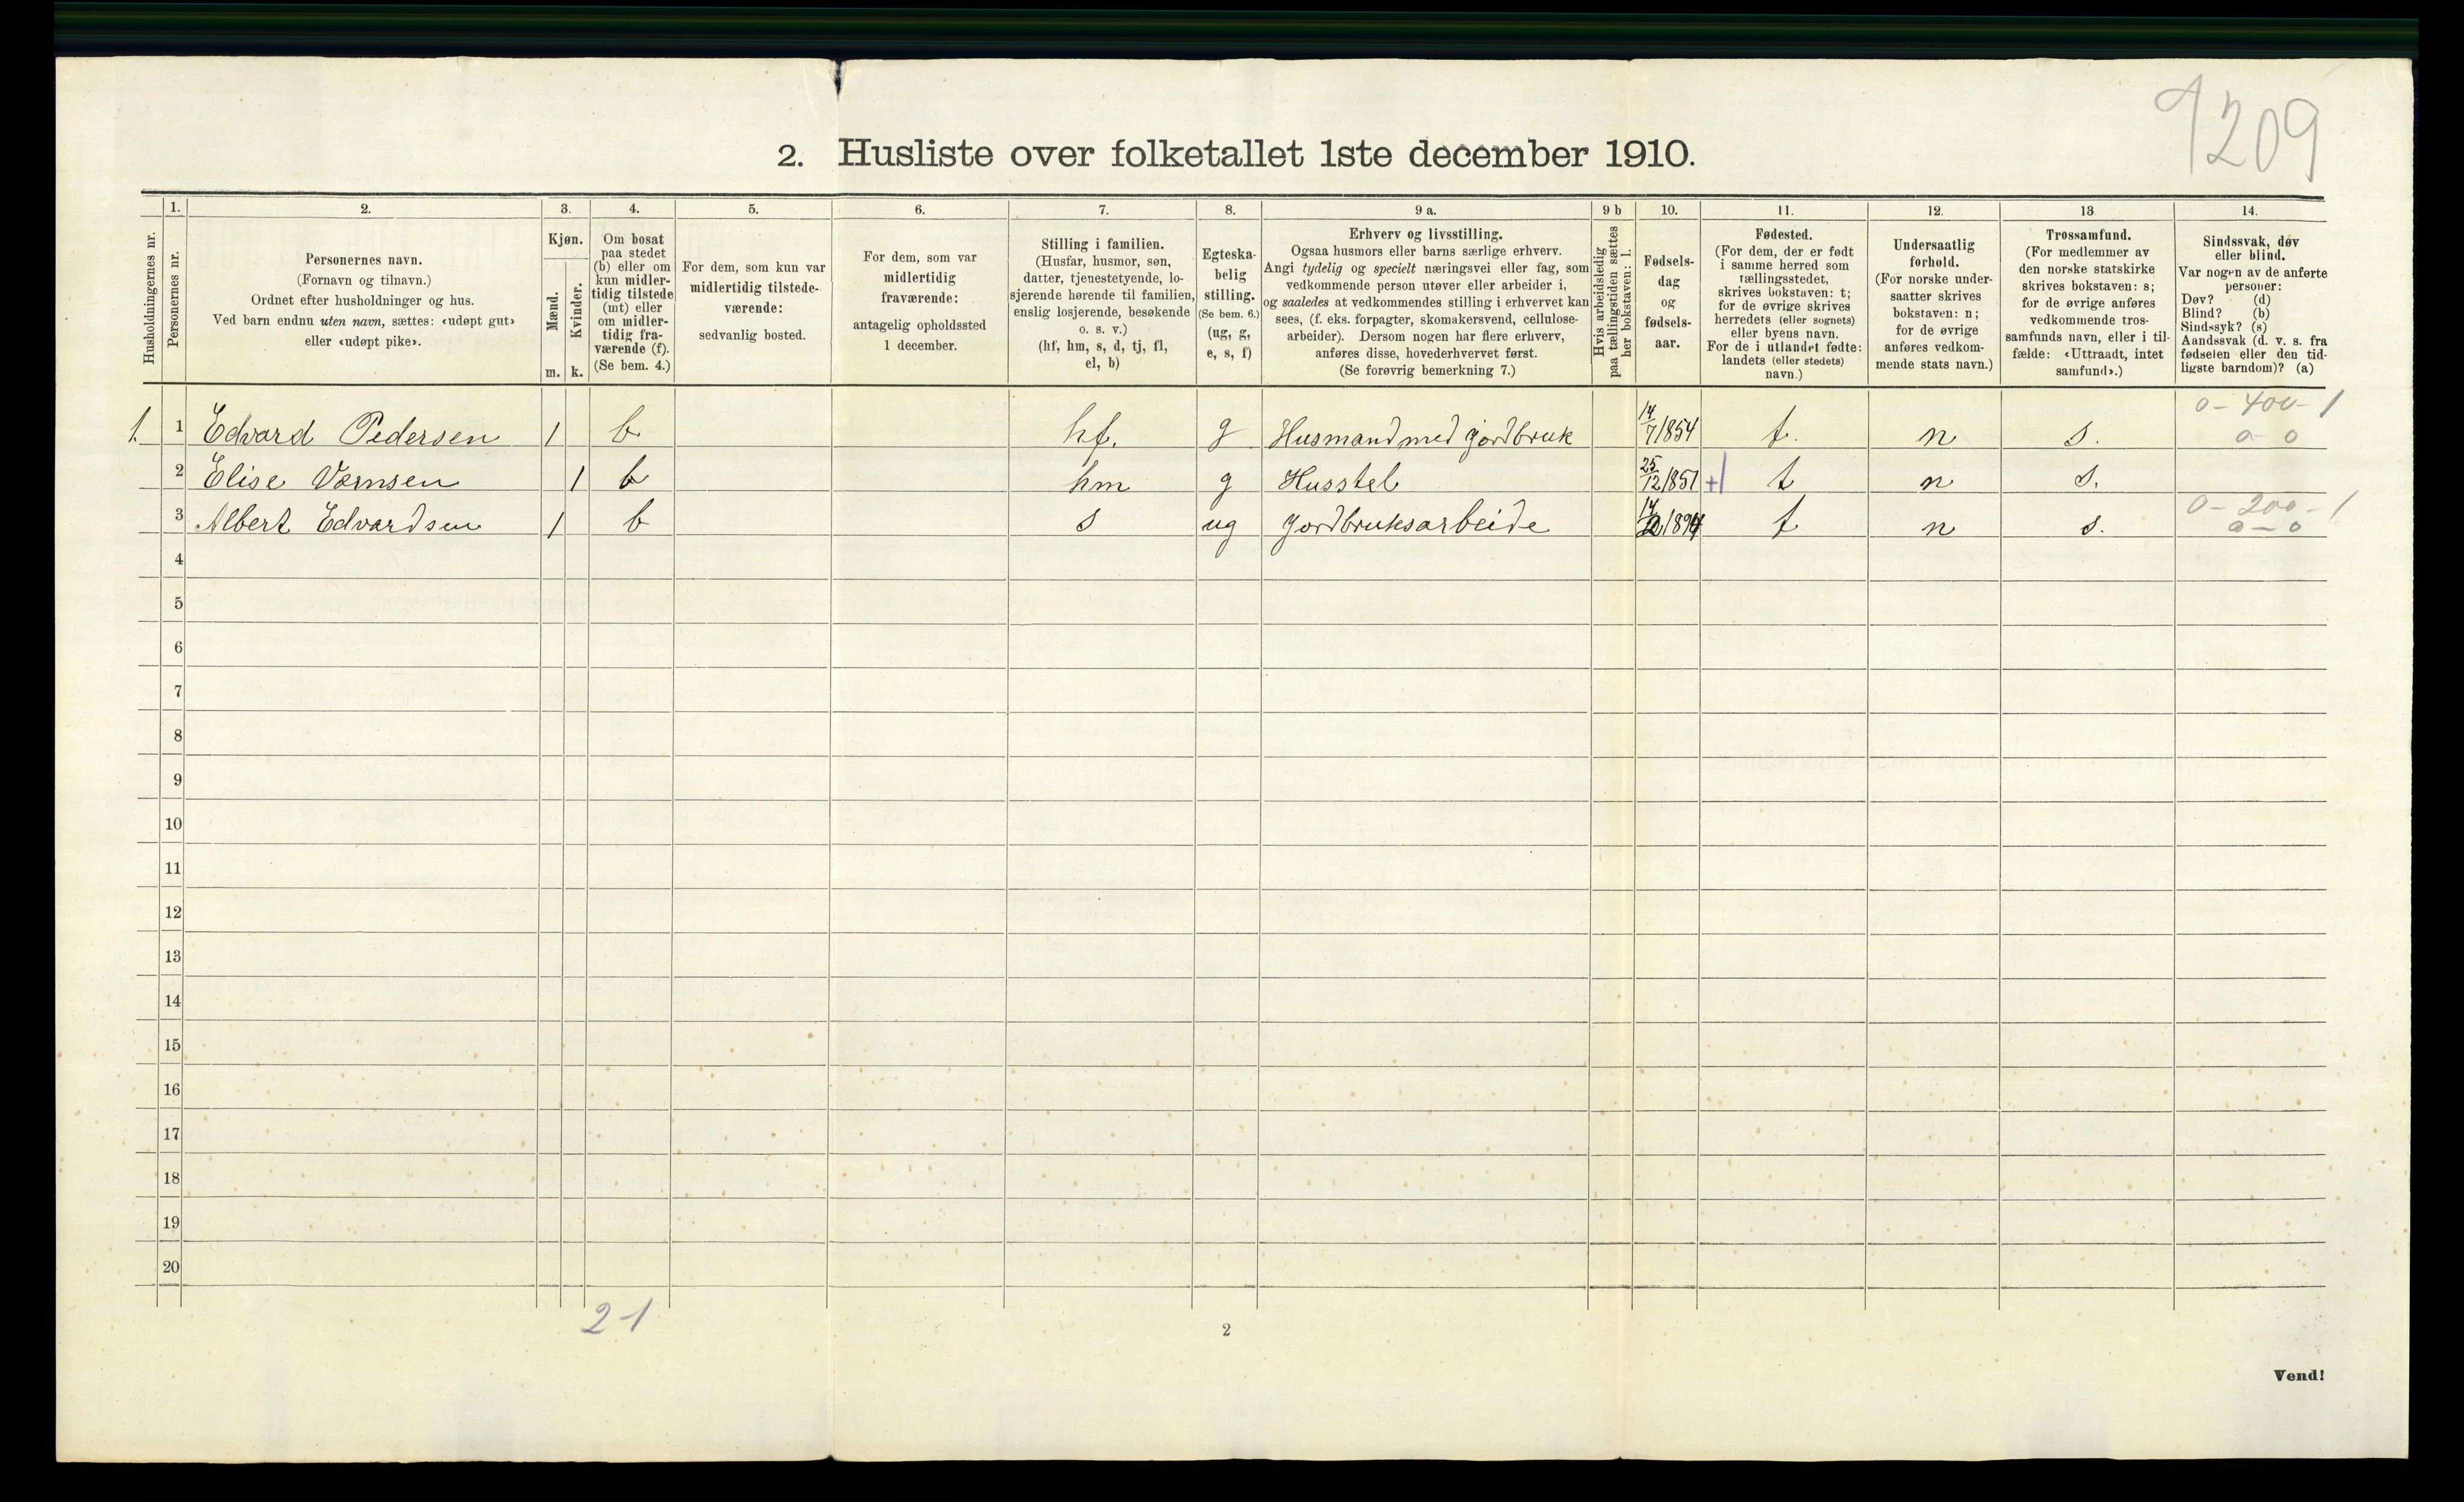 9209
2. Husliste over folketallet 1ste december 1910.
1. 2. 3. 4. 5. 6. 7. 8. 9 a. 9 b 10. 11. 12. 13 14.
Husholdningernes nr.
Personernes nr.
Personernes navn.
(Fornavn og tilnavn.)
Ordnet efter husholdninger og hus.
Ved barn endnu uten navn, sættes: «udøpt gut»
eller «udøpt pike».
Kjøn.
Mænd.
Kvinder.
m. k.
Om bosat
paa stedet
(b) eller om
kun midler-
tidig tilstede
(mt) eller
om midler-
tidig fra-
værende (f).
(Se bem. 4.)
For dem, som kun var
midlertidig tilstede-
værende:
sedvanlig bosted.
For dem, som var
midlertidig
fraværende:
antagelig opholdssted
1 december.
Stilling i familien.
(Husfar, husmor, søn,
datter, tjenestetyende, lo-
sjerende hørende til familien,
enslig losjerende, besøkende
o. s. v.)
(hf, hm, s, d, tj, fl,
el, b)
Egteska-
belig
stilling.
(Se bem. 6.)
(ug, g,
e, s, f)
Erhverv og livsstilling.
Ogsaa husmors eller barns særlige erhverv.
Angi tydelig og specielt næringsvei eller fag, som
vedkommende person utøver eller arbeider i,
og saaledes at vedkommendes stilling i erhvervet kan
sees, (f. eks. forpagter, skomakersvend, cellulose-
arbeider). Dersom nogen har flere erhverv,
anføres disse, hovederhvervet først.
(Se forøvrig bemerkning 7.)
Hvis arbeidsledig
paa tællingstiden sættes
her bokstaven: l.
Fødsels-
dag
og
fødsels-
aar.
Fødested.
(For dem, der er født
i samme herred som
tællingsstedet,
skrives bokstaven: t;
for de øvrige skrives
herredets (eller sognets)
eller byens navn.
For de i utlandet fødte:
landets (eller stedets)
navn.)
Undersaatlig
forhold.
(For norske under-
saatter skrives
bokstaven: n;
for de øvrige
anføres vedkom-
mende stats navn.)
Trossamfund.
(For medlemmer av
den norske statskirke
skrives bokstaven: s;
for de øvrige anføres
vedkommende tros-
samfunds navn, eller i til-
fælde: «Uttraadt, intet
samfund».)
Sindssvak, døv
eller blind.
Var nogen av de anførte
personer:
Døv? (d)
Blind? (b)
Sindssyk? (s)
Aandssvak (d. v. s. fra
fødselen eller den tid-
ligste barndom)? (a)
0 - 400 - 1
1. 1 Edvard Pedersen 1 b hf. g Husmand med jordbruk 14/7 1854 t. n s. 0 - 0
2 Elise Værnsen 1 b hm g Husstel 25/12 1851 +1 t n s.
0 - 200 - 1
3 Albert Edvardsen 1 b s ug Jordbruksarbeide 1894 t n s. 0 - 0
4
5
6
7
8
9
10
11
12
13
14
15
16
17
18
19
20
2-1
2
Vend!